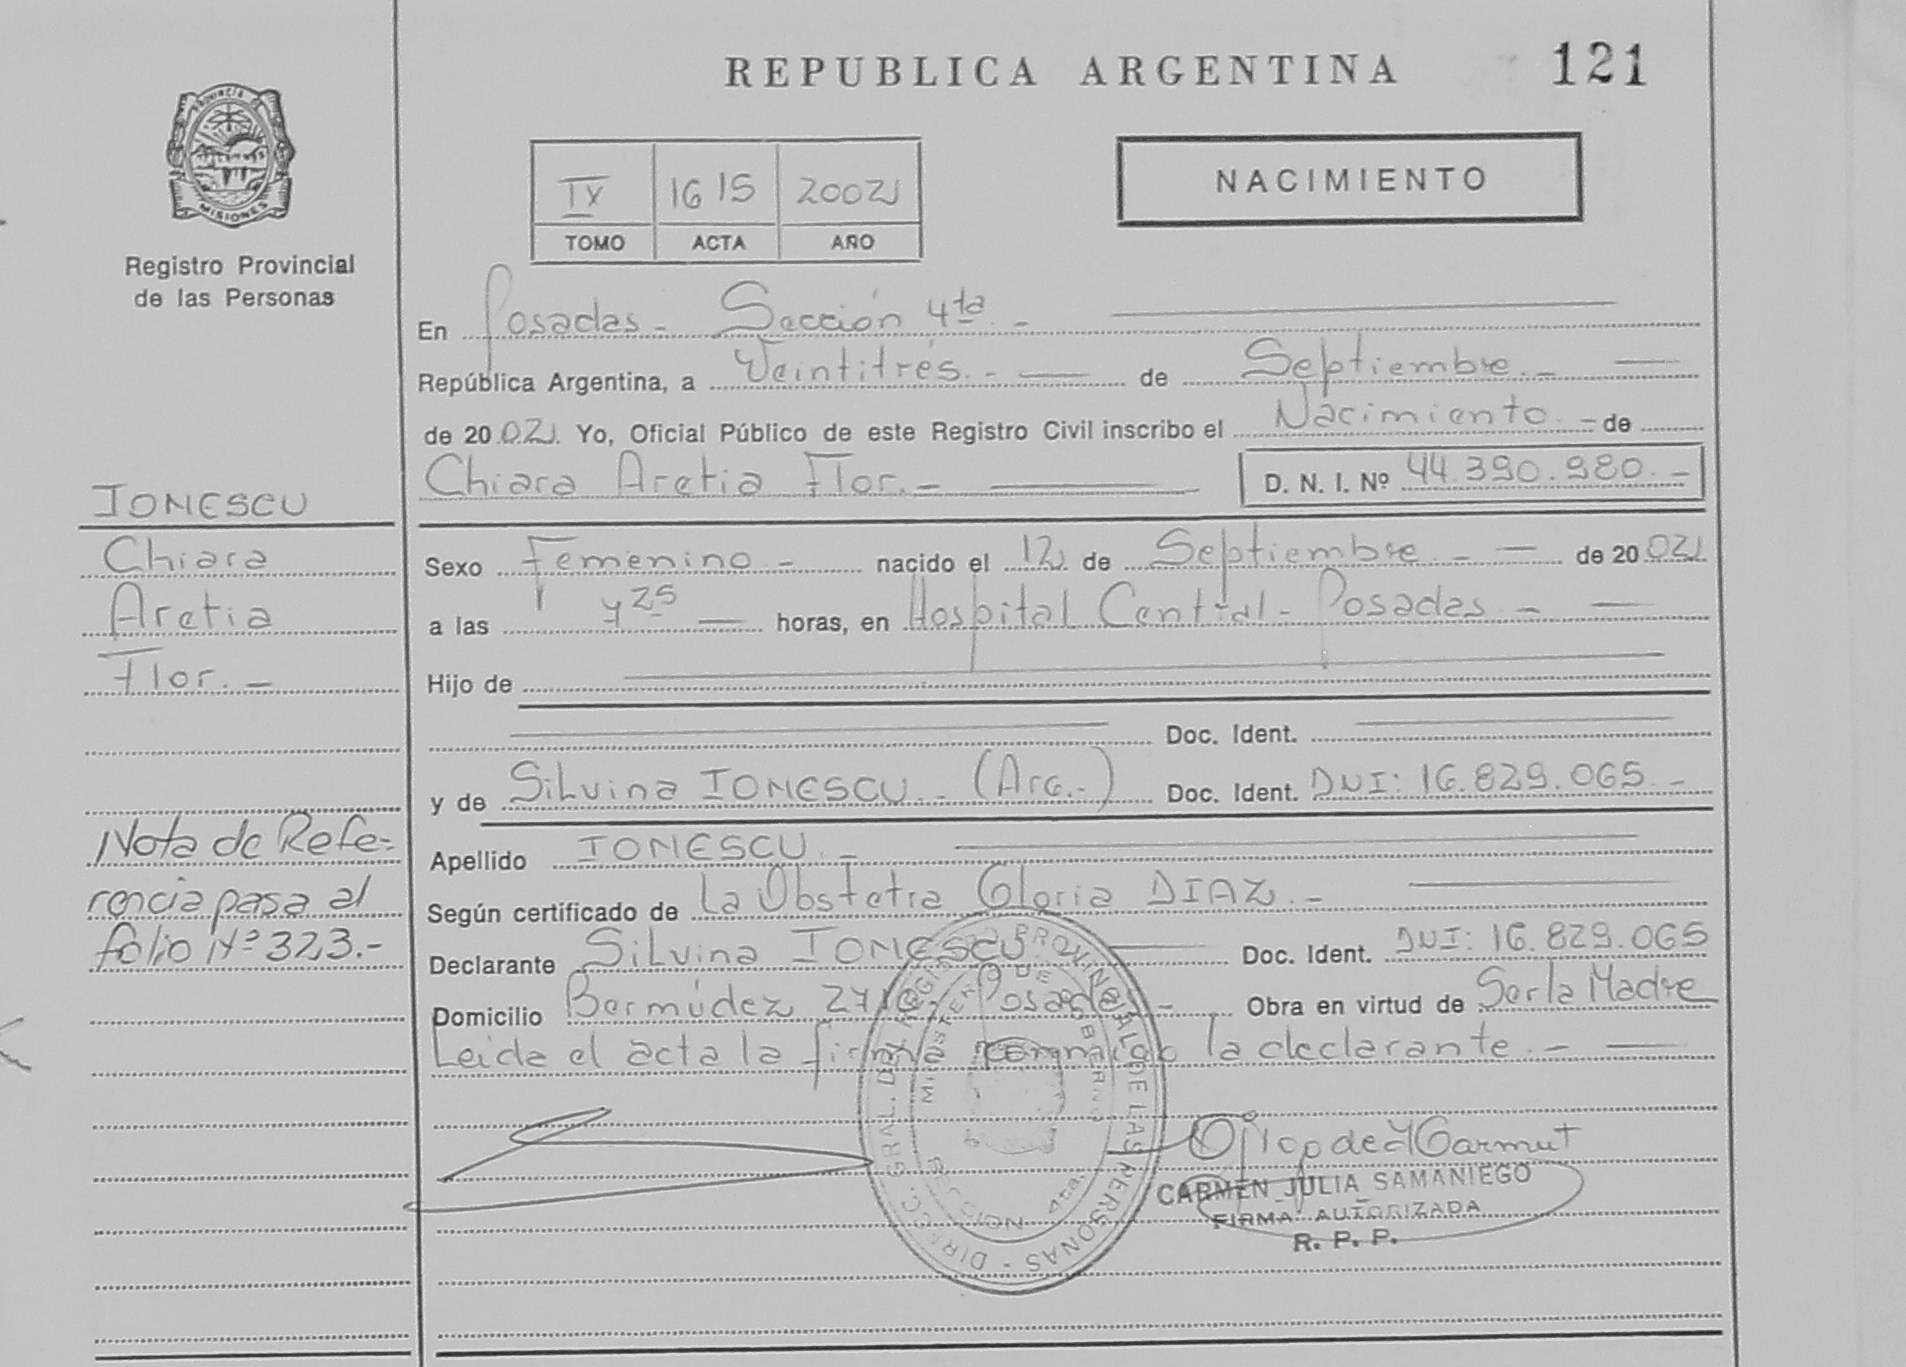 REPUBLICA ARGENTINA 121
PROVINCIA DE
MISIONES
Registro Provincial
de las Personas
IX 1615 2002
TOMO ACTA AÑO
NACIMIENTO
En Posadas - Sección 4ta. -
República Argentina, a Veintitrés. - de Septiembre. -
de 2002. Yo, Oficial Público de este Registro Civil inscribo el Nacimiento. - de
Chiara Aretia Flor. - D. N. I. Nº 44.390.980. -
IONESCU
Chiara
Aretia
Flor. -
Sexo Femenino - nacido el 12 de Septiembre - - de 2002
a las 4 25 horas, en Hospital Central - Posadas -
Hijo de
Doc. Ident.
y de Silvina IONESCU. - (Arg.-) Doc. Ident. DNI: 16.829.065. -
Apellido IONESCU. -
Según certificado de La Obstetra Gloria DIAZ. -
Declarante Silvina IONESCU Doc. Ident. DNI: 16.829.065
Domicilio Bermúdez Posadas - Obra en virtud de Ser la Madre
Leída el acta la firma conmigo la declarante. -
Nota de Refe-
rencia pasa al
folio Nº 323.-
DIRECC. GRAL. DEL REGISTRO PROVINCIAL DE LAS PERSONAS -
MINISTERIO DE GOBIERNO
SECCION 4ta.
CARMEN JULIA SAMANIEGO
FIRMA AUTORIZADA
R. P. P.